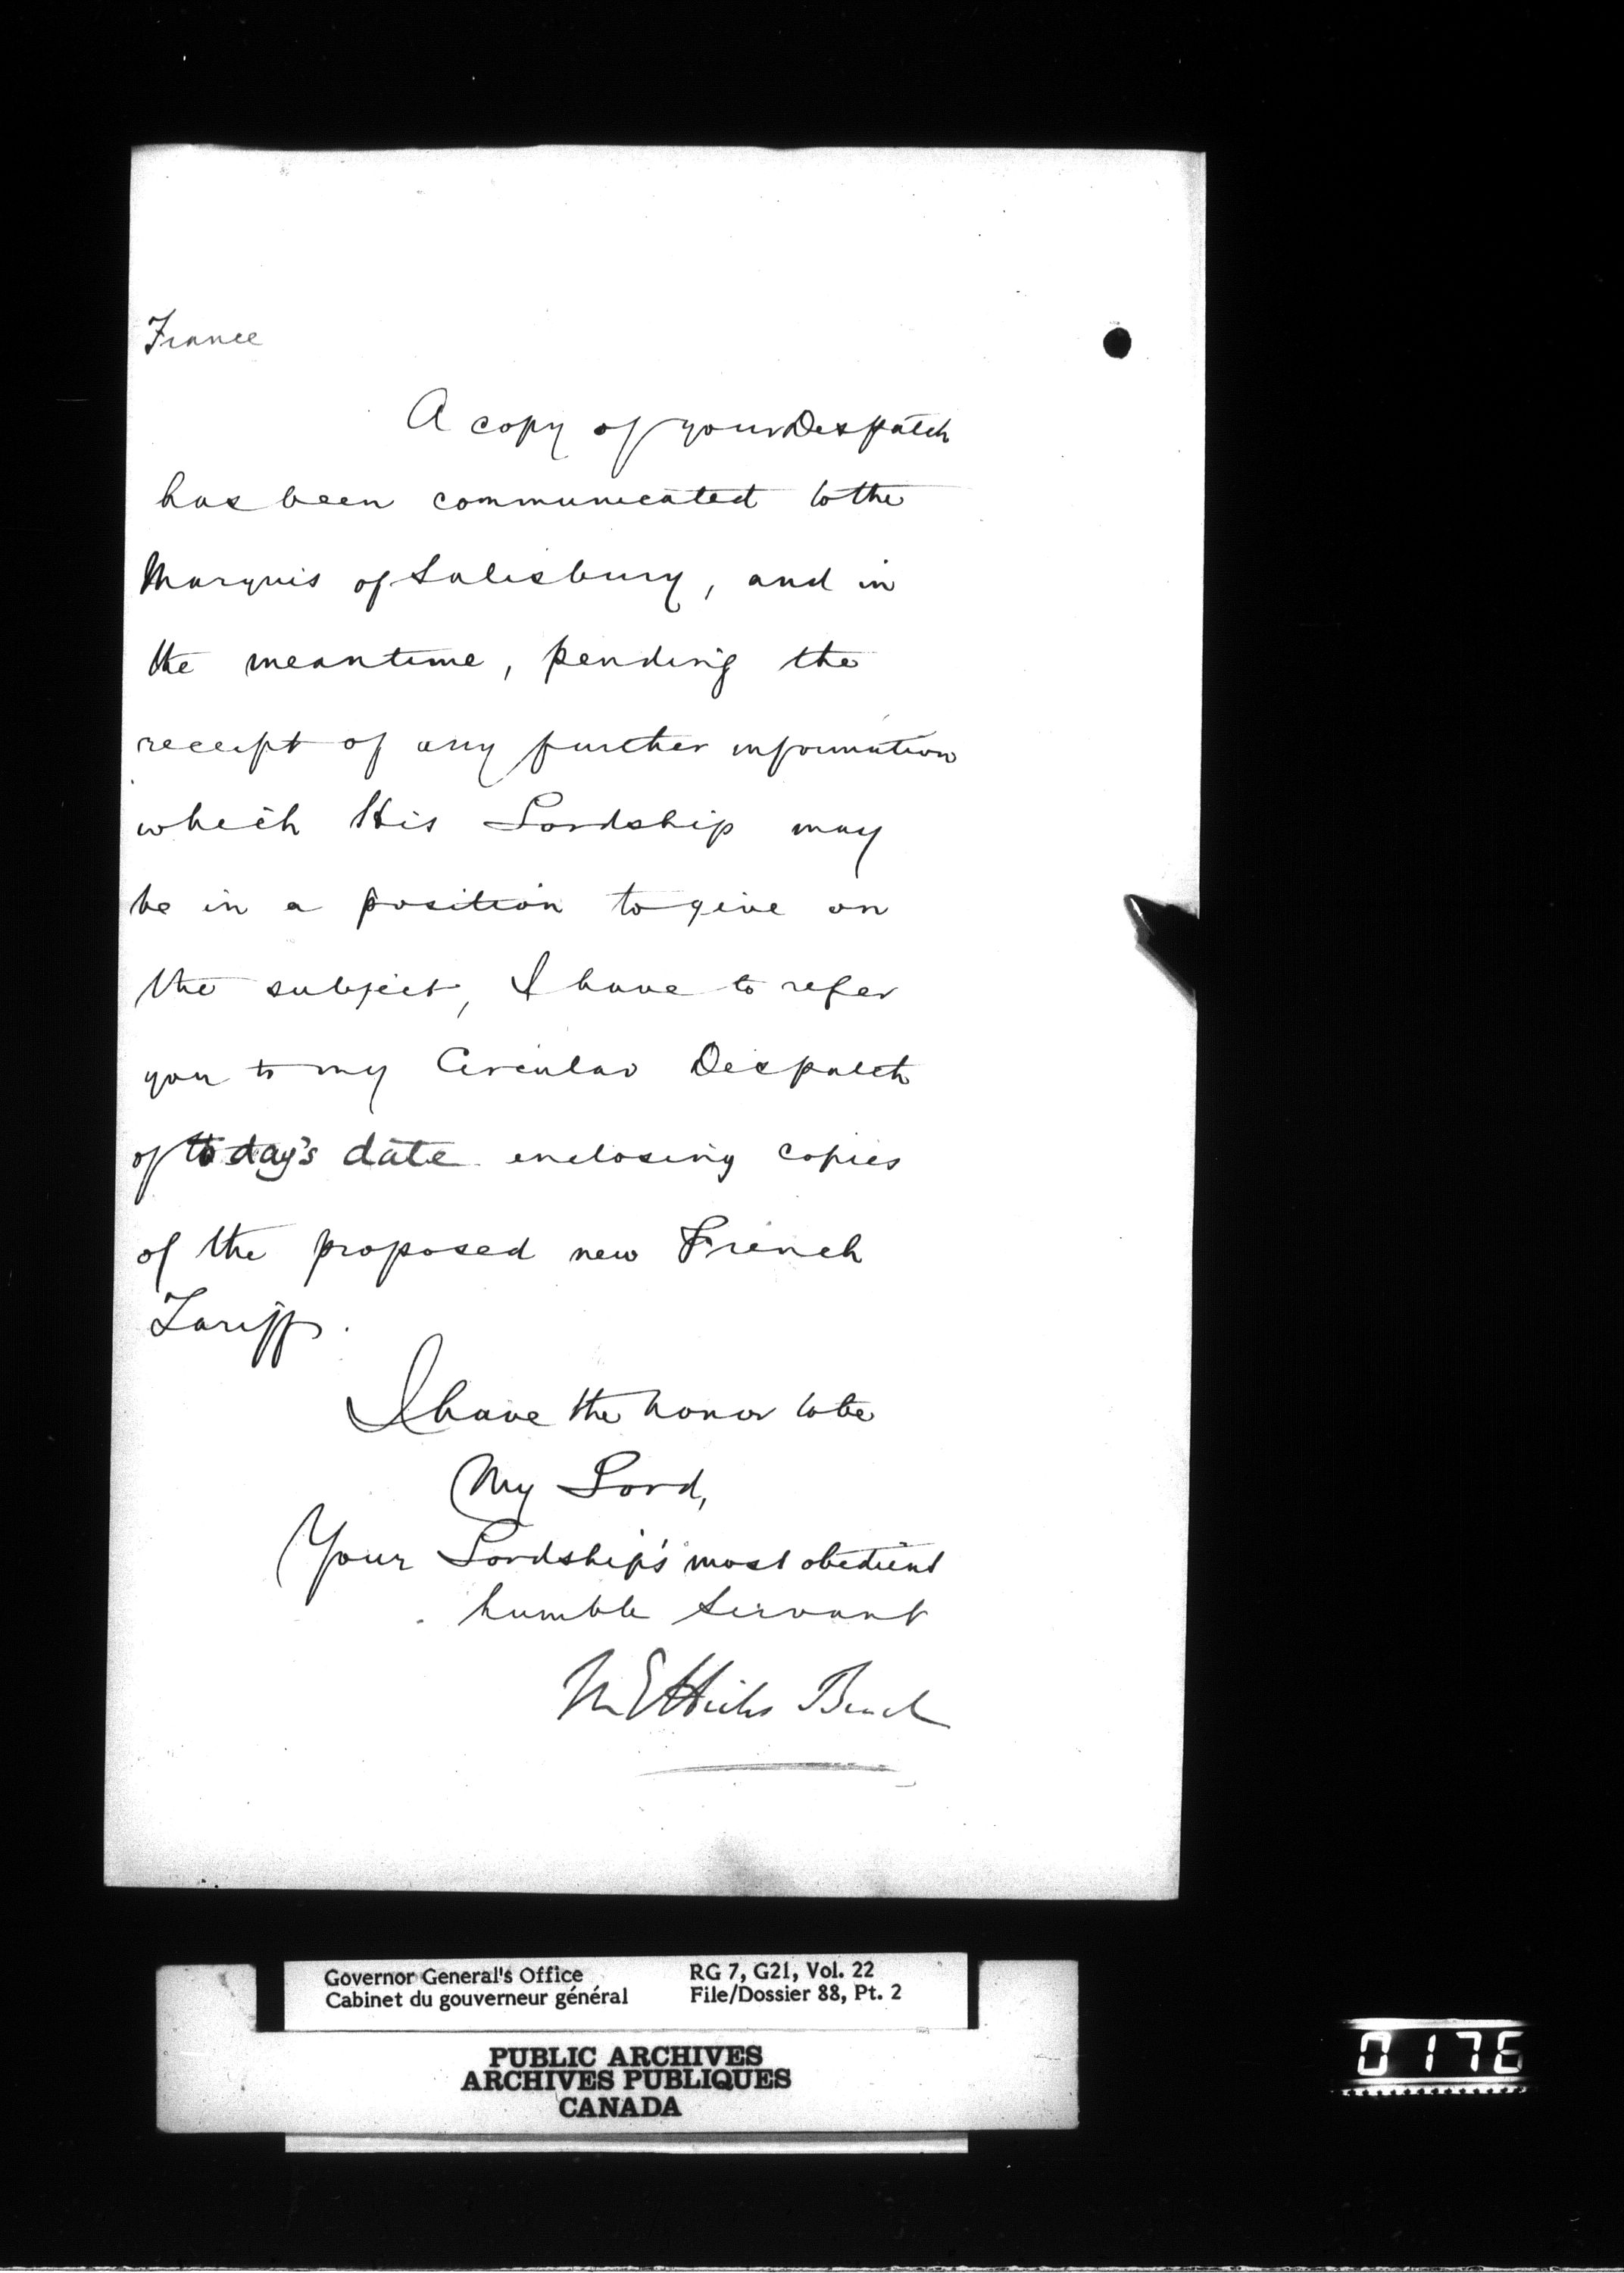 France
A copy of your Despatch
has been communicated to the
Marquis of Salisbury, and in
the meantime, pending the
receipt of any further information
which His Lordship may
be in a position to give on
the subject, I have to refer
you to my Circular Despatch
of to day's date enclosing copies
of the proposed new French
Tariff.
I have the honor to be
My Lord,
Your Lordship's most obedient
humble servant
M E Hicks Beach
Governor General's Office
Cabinet du gouverneur général
RG 7, G21, Vol. 22
File/Dossier 88, Pt. 2
PUBLIC ARCHIVES
ARCHIVES PUBLIQUES
CANADA
0176